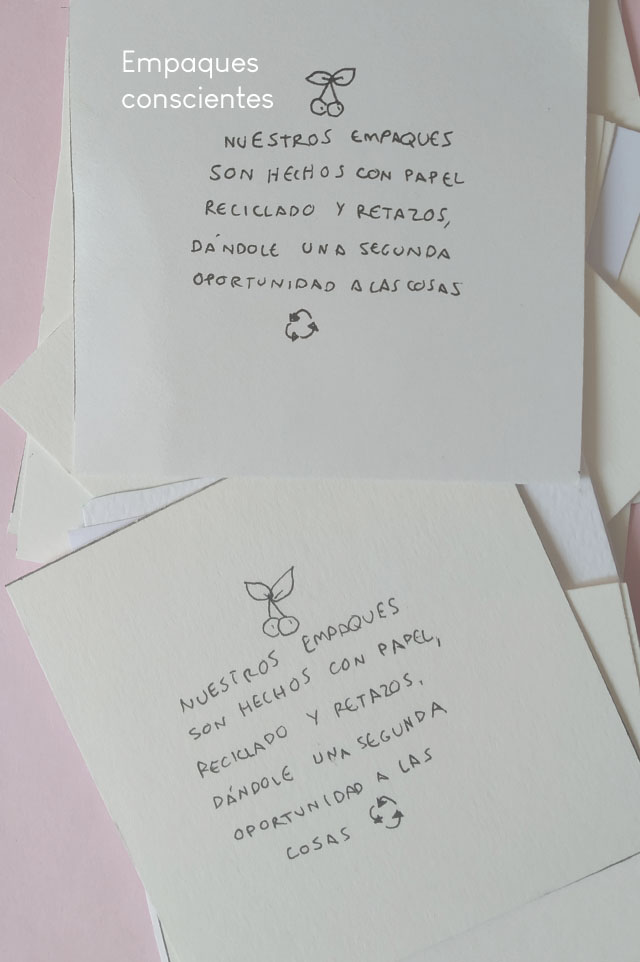 Empaques
conscientes
NUESTROS EMPAQUES
SON HECHOS CON PAPEL
RECICLADO Y RETAZOS,
DÁNDOLE UNA SEGUNDA
OPORTUNIDAD A LAS COSAS
NUESTROS EMPAQUES
SON HECHOS CON PAPEL,
RECICLADO Y RETAZOS,
DÁNDOLE UNA SEGUNDA
OPORTUNIDAD A LAS
COSAS